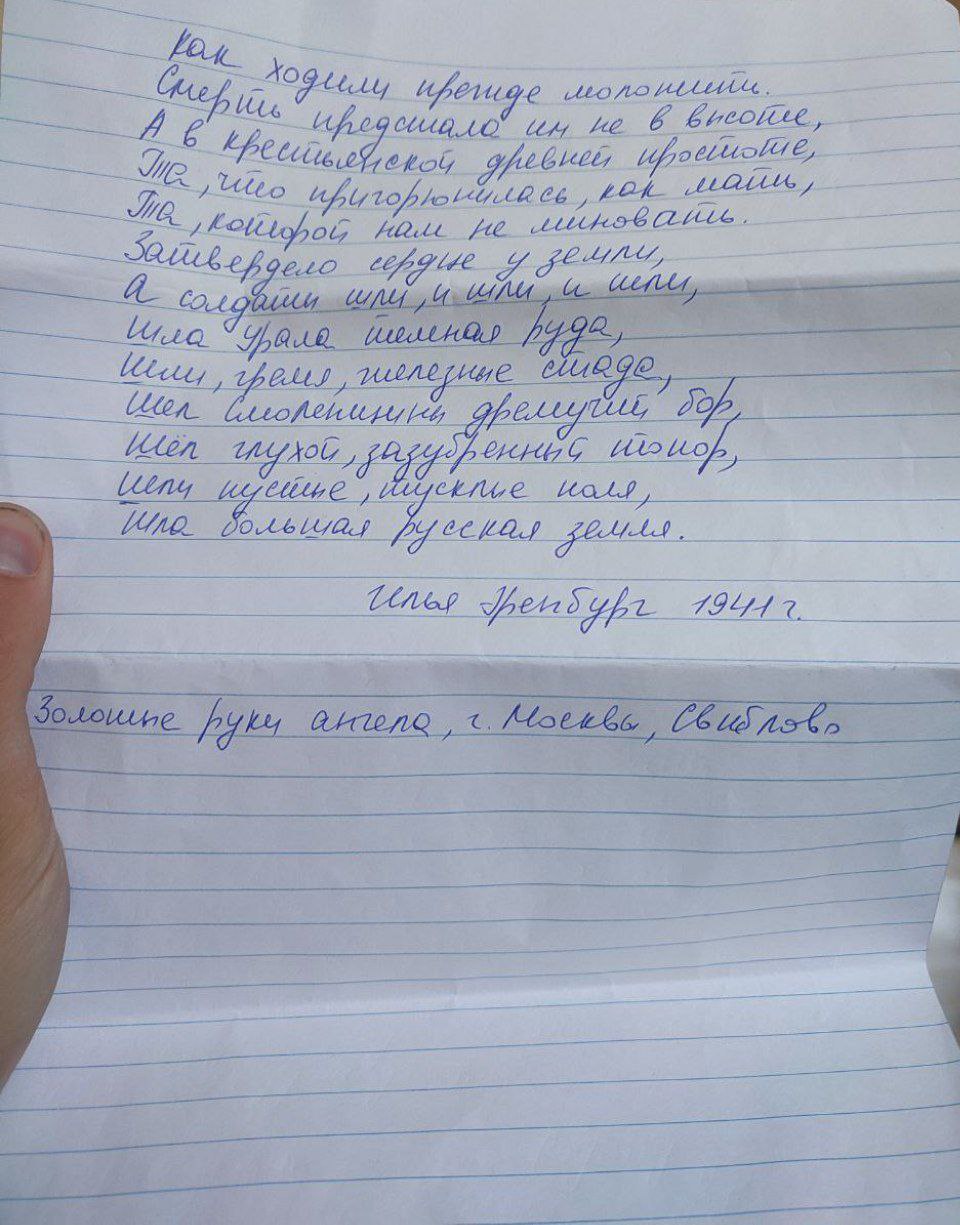 Как ходили прежде моложити.
Смерть предстала им не в высоте,
А в крестьянской древней простоте,
Та, что пригорюнилась, как мать,
Та, которой нам не миновать.
Затвердело сердце у земли,
А солдаты шли, и шли, и шли,
Шла Урала темная руда,
Шли, гремя, железные стада,
Шел Смоленщины дремучий бор,
Шёл глухой, зазубренный топор,
Шли пустые, тусклые поля,
Шла большая русская земля.
Илья Эренбург 1941 г.
Золотые руки ангела, г. Москвы, Свиблово